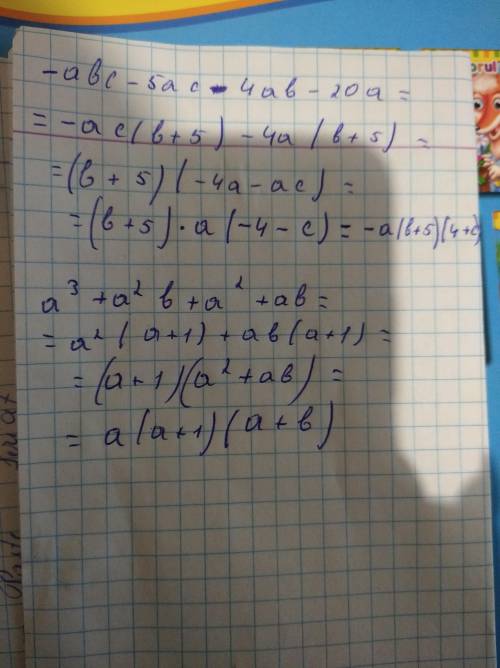 -abc - 5ac - 4ab - 20a =
= -ac(b+5) - 4a(b+5) =
= (b+5)(-4a-ac) =
= (b+5)·a(-4-c) = -a(b+5)(4+c)
a³ + a²b + a² + ab =
= a²(a+1) + ab(a+1) =
= (a+1)(a²+ab) =
= a(a+1)(a+b)